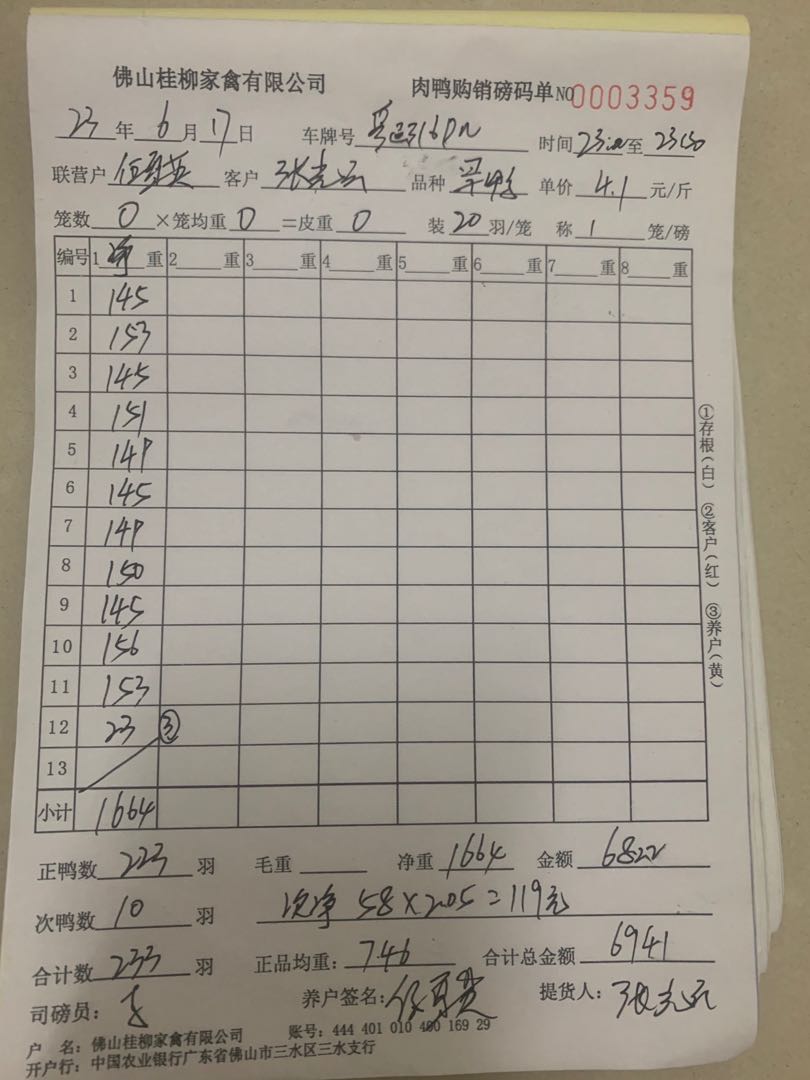 佛山桂柳家禽有限公司 肉鸭购销磅码单 NO 0003359
23 年 6 月 17 日 车牌号 时间 至
联营户 客户 张克云 品种 单价 4.1 元/斤
笼数 0 ×笼均重 0 =皮重 0 装 20 羽/笼 称 1 笼/磅
编号 1 净 重 2 重 3 重 4 重 5 重 6 重 7 重 8 重
1 145
2 153
3 145
4 151
5 149
6 145
7 149
8 150
9 145
10 156
11 153
12 23 ③
13
小计 1664
正鸭数 223 羽 毛重 净重 1664 金额 6822
次鸭数 10 羽 次净 58×2.05=119元
合计数 233 羽 正品均重: 746 合计总金额 6941
司磅员: 养户签名: 提货人: 张克云
户 名: 佛山桂柳家禽有限公司 账号: 444 401 010 400 169 29
开户行: 中国农业银行广东省佛山市三水区三水支行
①存根(白) ②客户(红) ③养户(黄)